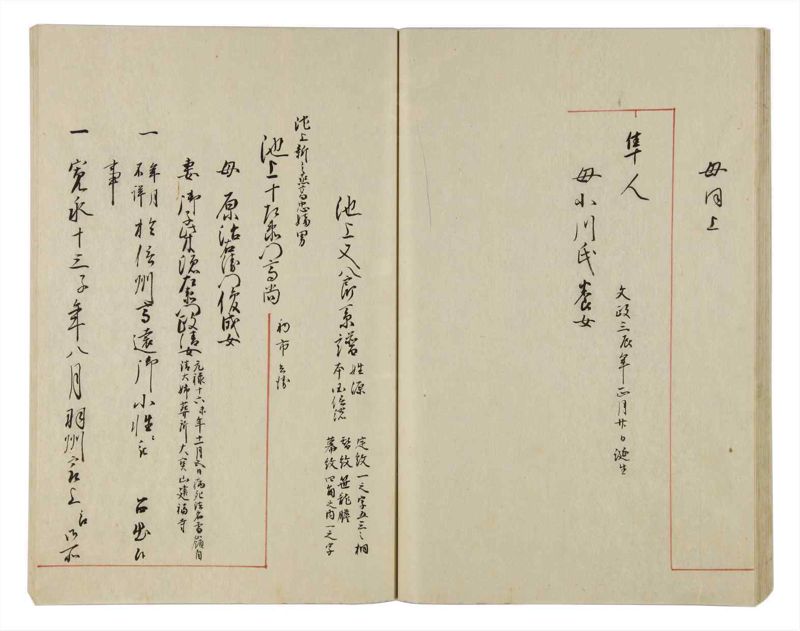 母同上
隼人
文政三辰年正月廿日誕生
母小川氏養女
池上又八郎系譜
姓源
本国信濃
定紋一文字五三之桐
替紋笹龍膽
幕紋四角之内一文字
池上新之丞忠嫡男
池上十左衛門高尚
初市
母原治左衛門俊成女
妻御子柴源左衛門政清女
元禄十六未年十一月六日病死法名雪嶺自
清大姉葬所大宝山建福寺
一年月不詳於信州高遠御小姓ニ
事
一寛永十三子年八月羽州最上ニ